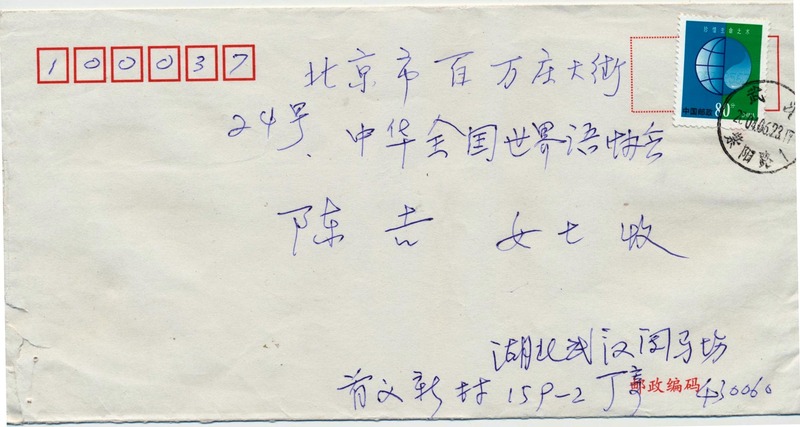 100037
珍惜生命之水
中国邮政 80分
武汉
2004.06.23.17
紫阳路
北京市百万庄大街
24号
中华全国世界语协会
陈吉 女士收
湖北武汉阅马场
首义新村159-2 丁
邮政编码 430060